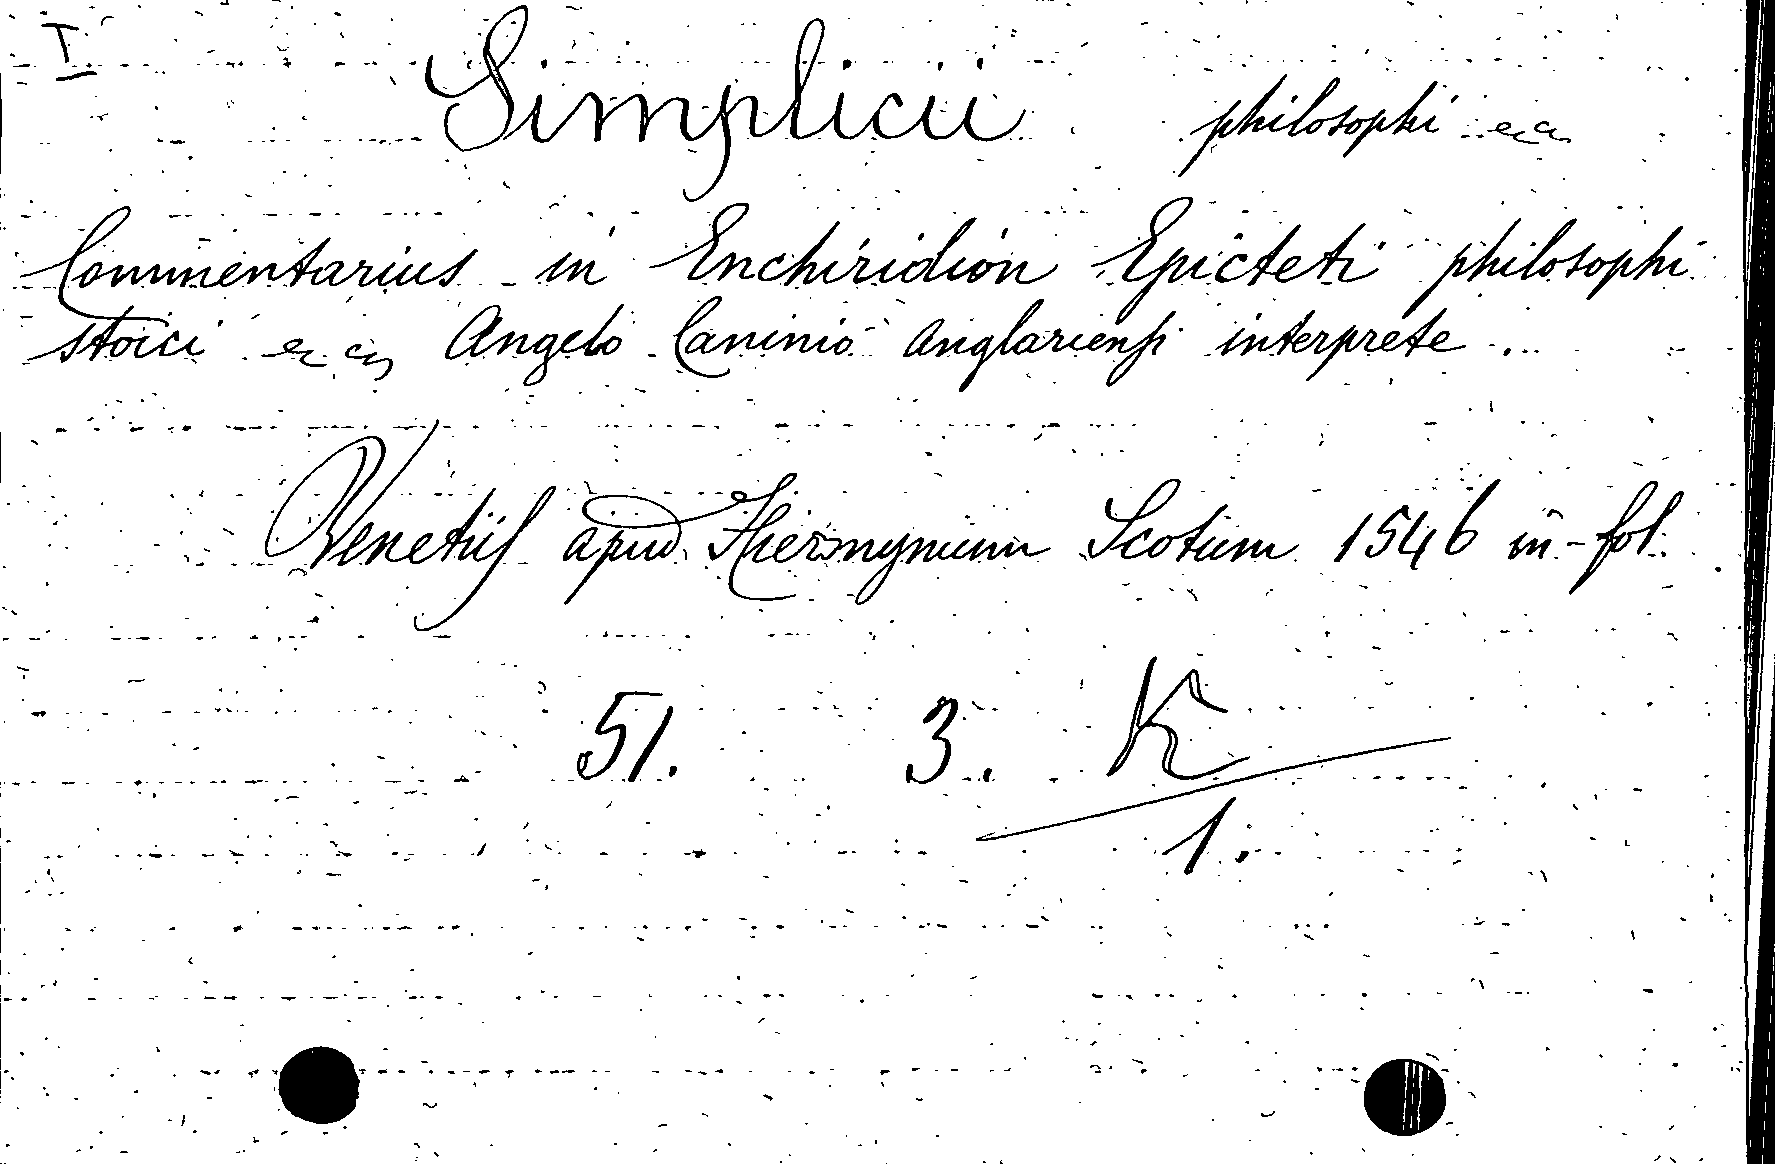 I
Simplicii philosophi
Commentarius in Enchiridion Epicteti philosophi
stoici Angelo Caninio Anglariensi interprete ..
Venetiis apud Hiermynumm Scotum 1546 in-fol.
51. 3. K
1.